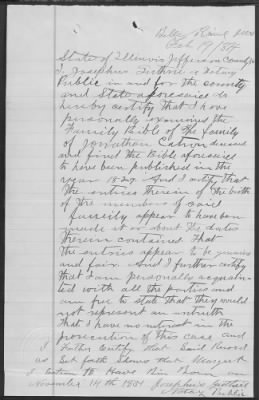 Belle Rive Ills
Feb 19/84
State of Illinois Jefferson County ss
I Josephus Guthrie a Notary
Public in and for the county
and State aforesaid do
hereby certify that I have
personally examined the
Family Bible of the family
of Jonathan Catron deceased
and find the Bible aforesaid
to have been published in the
year And I certify that
the entries therein of the birth
of the members of said
family appear to have been
made at or about the dates
therein contained. That
the entries appear to be genuine
and fair And I further certify
that I am personally acquain
ted with all the parties and
am free to state that they would
not represent an untruth
that I have no interest in the
prosecution of this case and
Father Certify that Said Record
as Set forth Shows that Margret
Catron to Have Bin born on
November 14th 1851 Josephus Guthrie
Notary Public